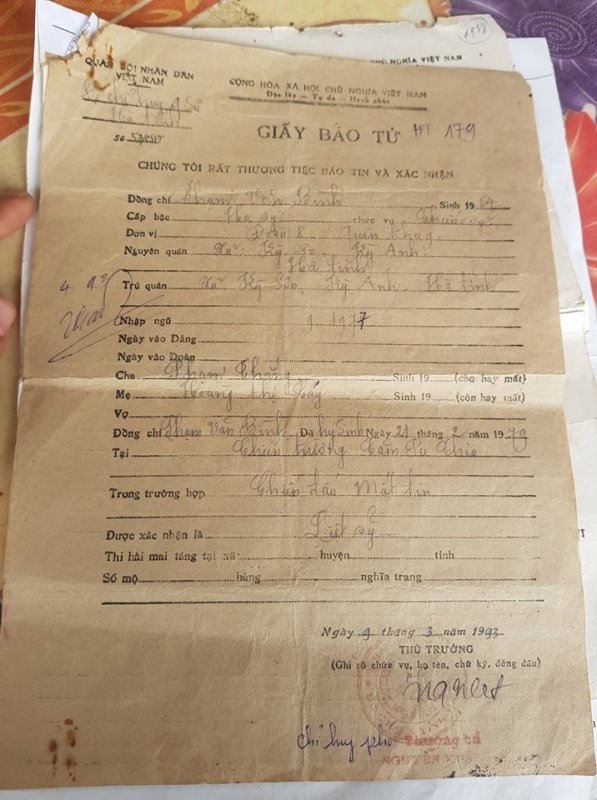 1952
CHỦ NGHĨA VIỆT NAM
QUÂN ĐỘI NHÂN DÂN
VIỆT NAM
CỘNG HÒA XÃ HỘI CHỦ NGHĨA VIỆT NAM
Độc lập — Tự do — Hạnh phúc
Số
GIẤY BÁO TỬ HT 179
CHÚNG TÔI RẤT THƯƠNG TIẾC BÁO TIN VÀ XÁC NHẬN
Đồng chí Phạm Văn Bình Sinh 19
Cấp bậc Hạ sỹ chức vụ Chiến sỹ
Đơn vị Đoàn 8
Nguyên quán Xã Kỳ Kỳ Anh
Hà tĩnh
Trú quán Xã Kỳ Kỳ Anh Hà tĩnh
Nhập ngũ 9.1977
Ngày vào Đảng
Ngày vào Đoàn
Cha Phạm Thắng Sinh 19 (còn hay mất)
Mẹ Hoàng thị Sinh 19 (còn hay mất)
Vợ
Đồng chí Phạm Văn Bình Đã hy sinh Ngày 21 tháng 2 năm 1979
Tại Chiến trường Căm Pu Chia
Trong trường hợp Chiến đấu Mất tin
Được xác nhận là Liệt sỹ
Thi hài mai táng tại xã huyện tỉnh
Số mộ hàng nghĩa trang
Ngày 9 tháng 3 năm 1993
THỦ TRƯỞNG
(Ghi rõ chức vụ, họ tên, chữ ký, đóng dấu)
chỉ huy phó Thượng tá
NGUYỄN